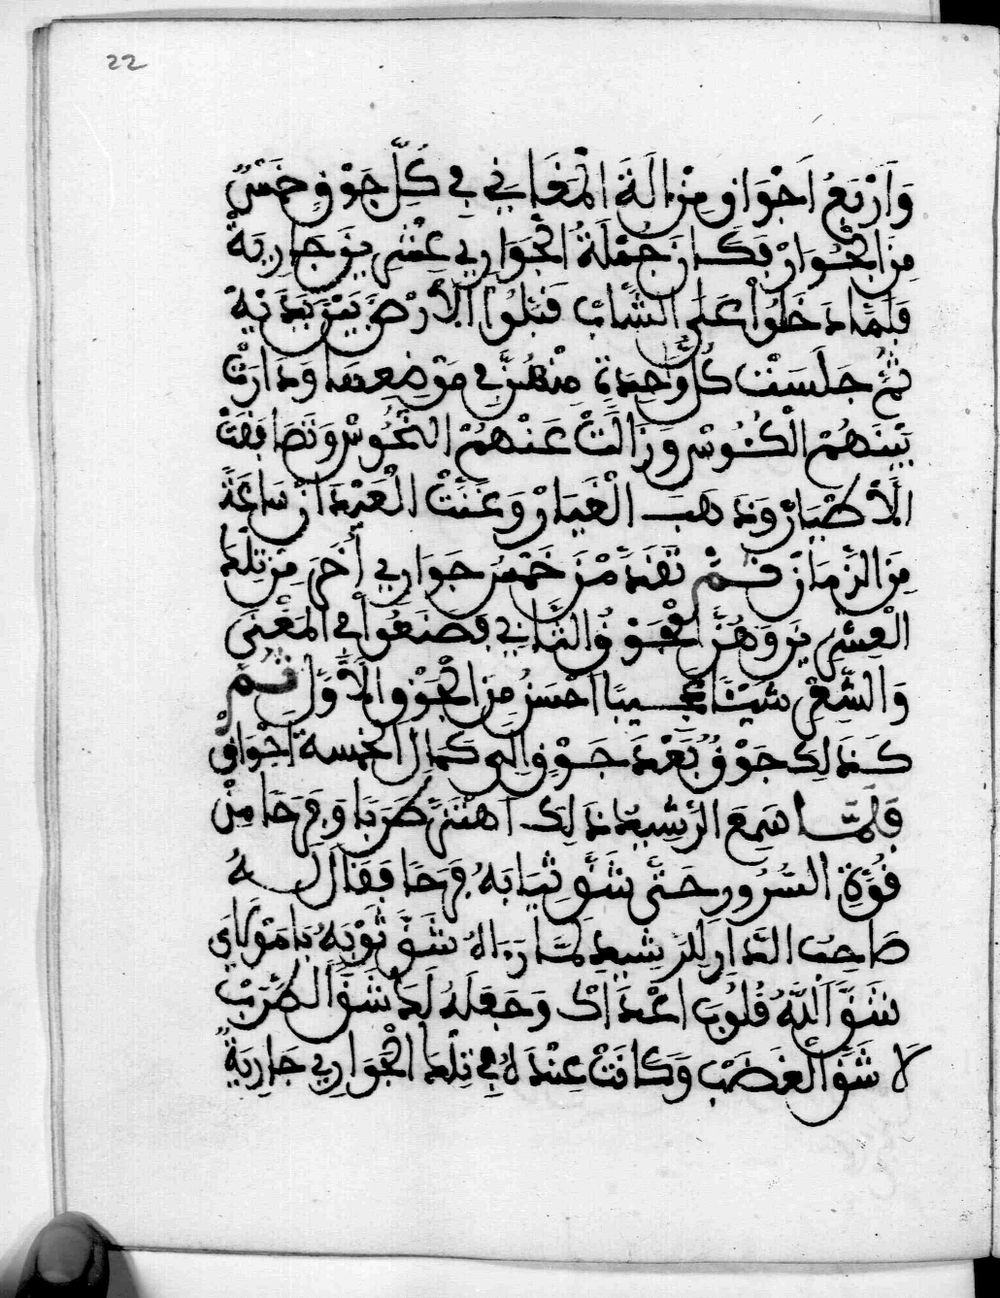 22
وَأَرْبَعُ أَجْوَاق مِنْ الَةَ الْمَغَانِي فِي كُلِّ جَوْقٍ خَمْسٌ
مِنَ الْجْوَارْ فكَان جُمْلَةُ الْجَوَارِي عِشْرِينَ جَارِيَةً
فَلَمَّا دَخَلُواْ عَلَى الشَّابْ قَبَّلُوا الأَرْضَ بَيْنَ يَدَيْهِ
ثُمَّ جَلَسَتْ كُلُّ وَاحِدَةٍ مِنْهُنَّ فِي مَوْضِعِهَا وَدَارَتْ
بَيْنَهُمْ الْكُئُوسْ وَزَالَتْ عَنْهُمْ النُّحُوسْ وَتَصَافَقَتْ
الأَطْيَارْ وَذهبَ الْغيَارْ وَغَنَّتْ الْعِيدَانْ سَاعَةً
مِنَ الزَّمَانْ ثُمَّ تَقَدَّمْنَ خَمْسُ جَوَارِي أُخَر مِنْ تِلْكَ
الْعِشْرِينَ وَهُنَّ الْجَوْقُ الثَّانِي فصَنَعُوا فِي الْمَغْنَى
وَالشِّعْرِ شَيْئاً عَجِيباً احْسَنُ مِنَ الْجَوْقِ الأَوَّلْ ثُمَّ
كَذَلِكَ جَوْقٌ بَعْدَ جَوْقٍ الَى كَمَالِ الخمسة اجْوَاقْ
فَلَمَّا سَمِعَ الرَّشِيدُ ذَلِكَ اهْتَزَّ طَرَباً وَفَرَحاً مِنْ
قُوَّةِ السُّرُورِ حَتَّى شَقَّ ثِيَابَهُ فَرَحاً فَقَالَ لَهُ
صَاحِبُ الدَّارِ لِلرَّشِيدِ لَمَّا رَءَاهُ شَقَّ ثَوْبَهُ يَا مَوْلَايَ
شَقَّ اللَّهُ قُلُوبَ اعْدَاكَ وَجَعَلَهُ لَكَ شَقَّ الطَّرَبْ
لَا شَقَّ الْغَضَبْ وَكَانَتْ عِنْدَهُ فِي تِلْكَ الْجَوَارِي جَارِيَةٌ